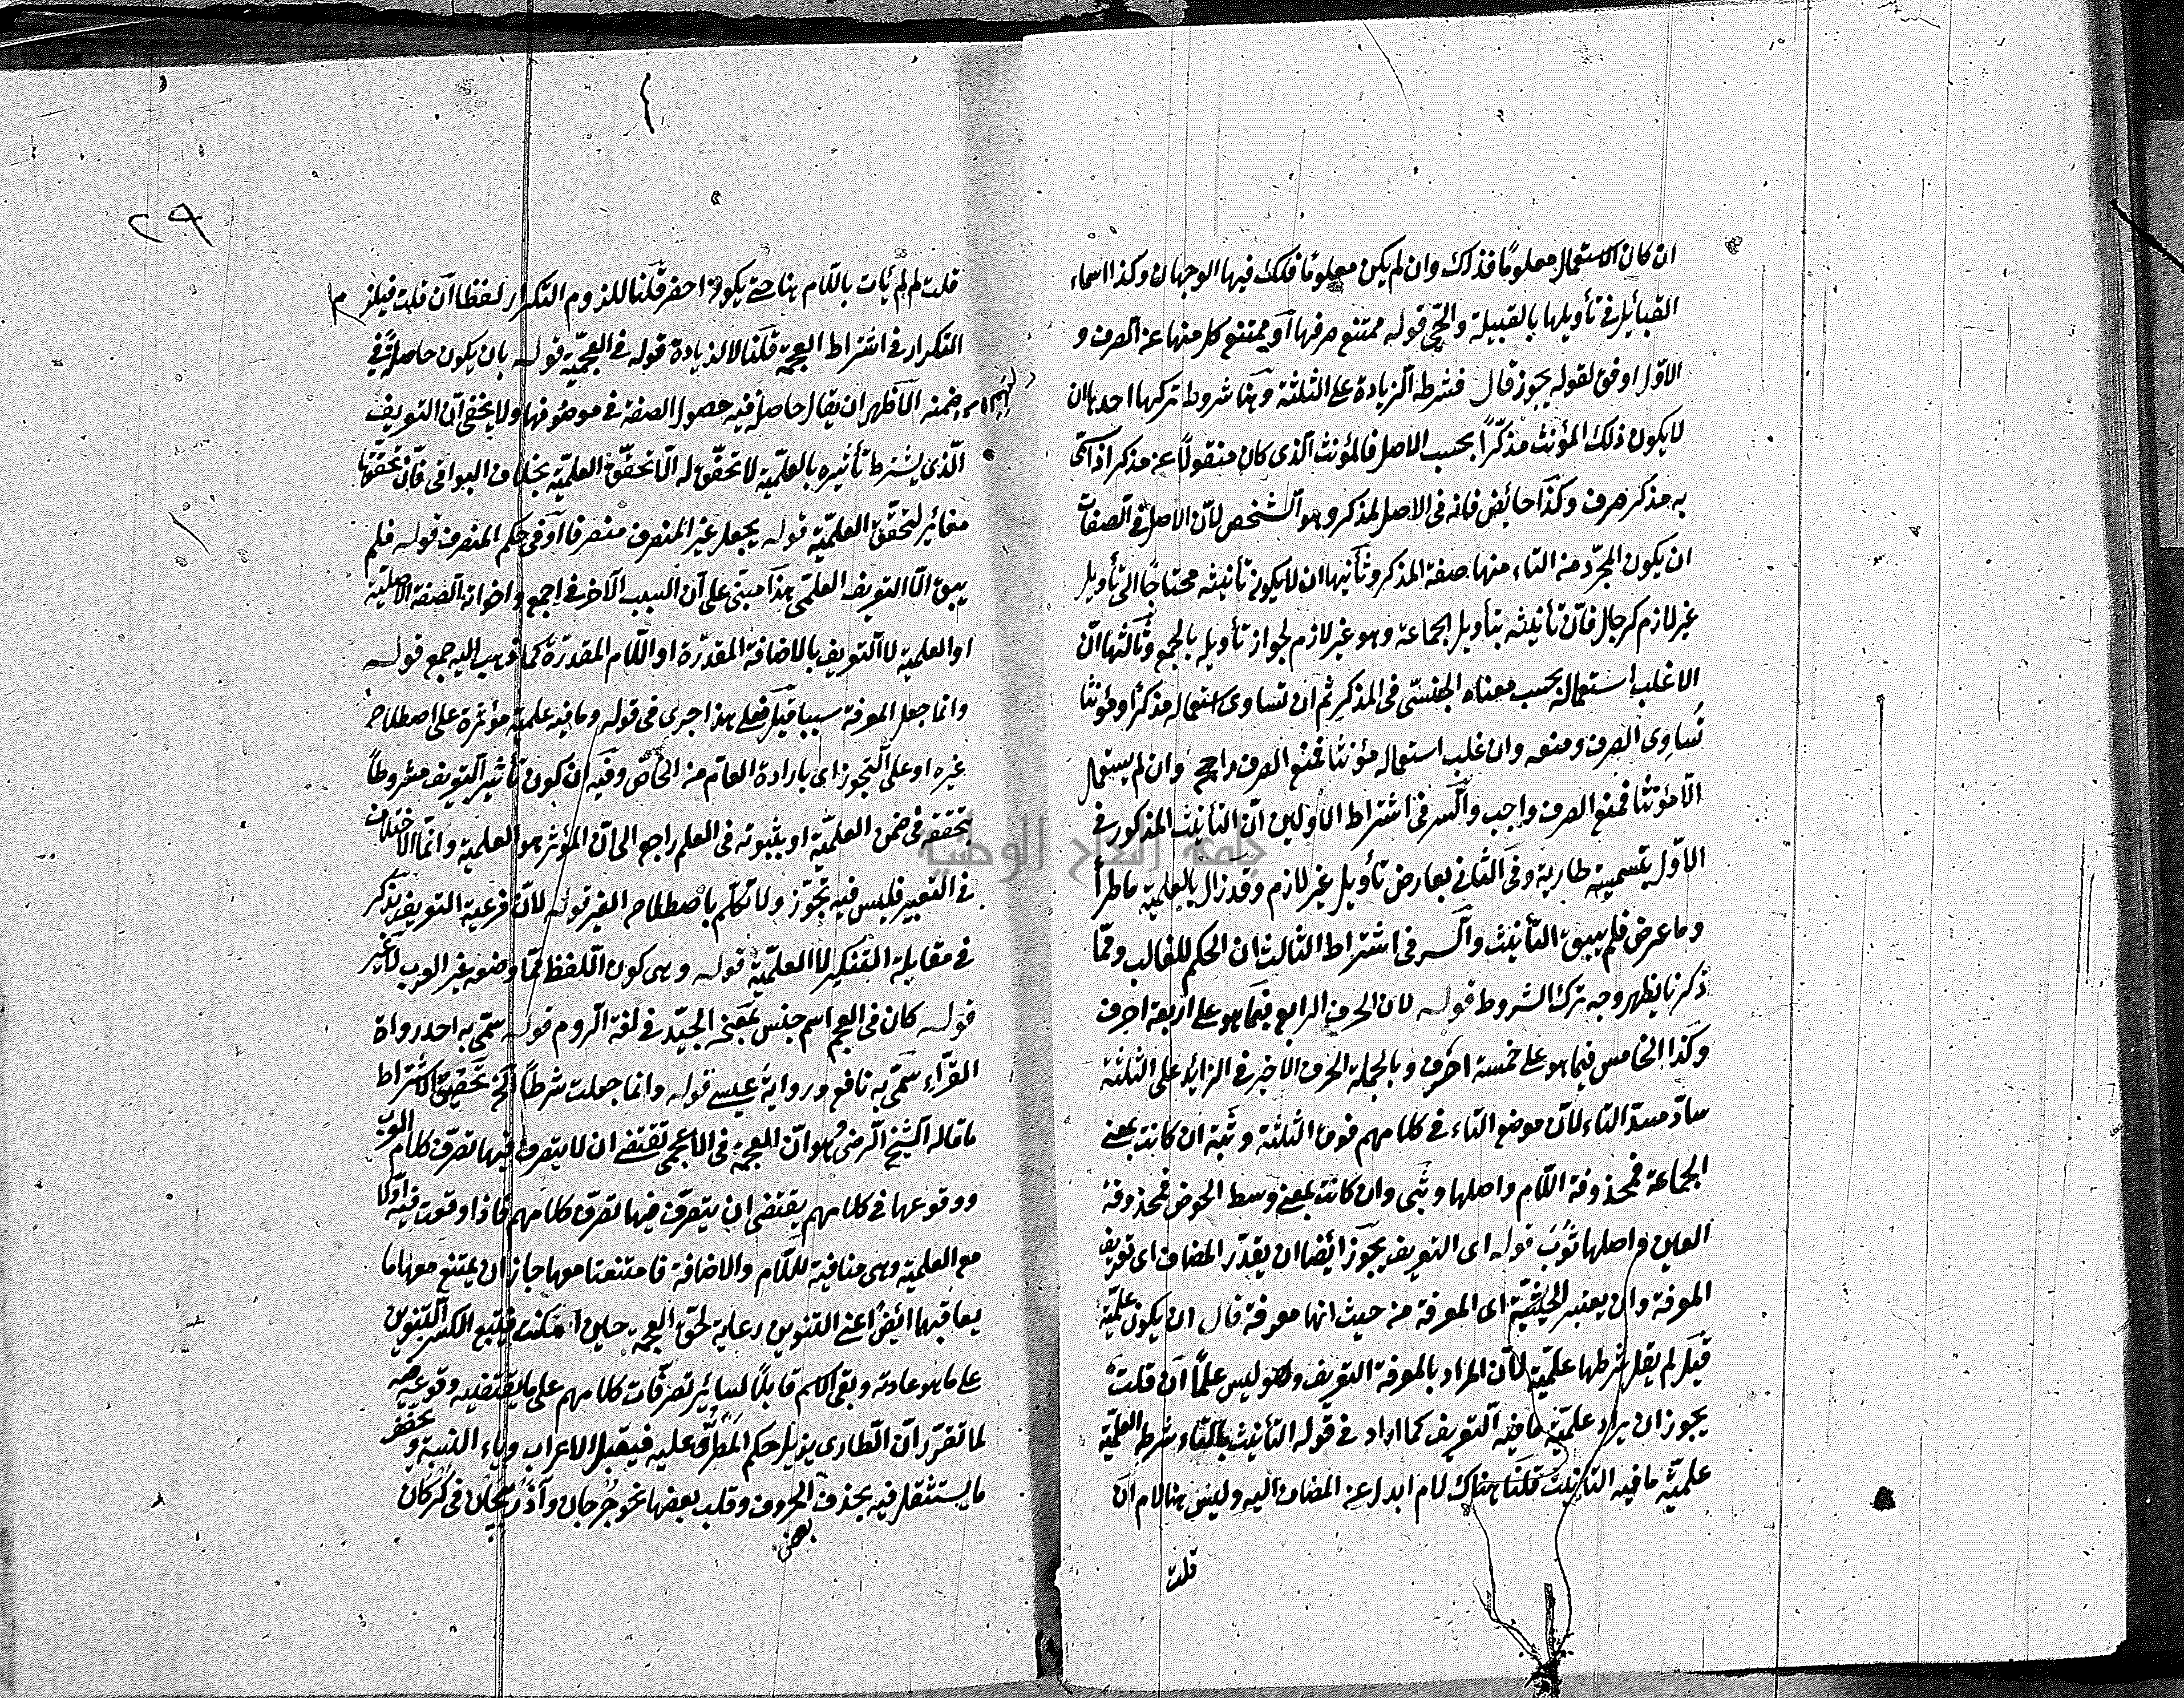 ان كان الاستعمال معلومًا فذلك وان لم يكن معلومًا فلك فيها الوجهان وكذا اسماء
القبائل في تأويلها بالقبيلة والحيّ قوله ممتنع صرفها او يمتنع كل منها عن الصرف و
الاوّل اوفق لقوله يجوز قال فشرطه الزيادة على الثلثة وهنا شروط تركها احدها ان
لا يكون ذلك المؤنث مذكّرًا بحسب الاصل فالمؤنث الذى كان منقولًا عن مذكر اذا سمّى
به مذكر صرف وكذا حائض فانه فى الاصل لمذكر وهو الشخص لانّ الاصل فى الصفات
ان يكون المجرّد منه التاء منها صفة المذكر وثانيها ان لا يكون تأنيثه محتاجًا الى تأويل
غير لازم كرجال فانّ تأنيثه بتأويل الجماعة وهو غير لازم لجواز تأويله بالجمع وثالثها انّ
الاغلب استعماله بحسب معناه الجنسى فى المذكر ثم ان تساوى استعماله مذكرًا ومؤنثا
تساوى الصرف ومنعه وان غلب استعماله مؤنثا فمنع الصرف راجح وان لم يستعمال
الّا مؤنثا فمنع الصرف واجب والسر فى اشتراط الاولين انّ التأنيث المذكور فى
الاوّل بتسمية طارية وفى الثانى بعارض تأويل غير لازم وقد زال بالعلمية ما طرأ
وما عرض فلم يبق التأنيث والسر فى اشتراط الثالث ان الحكم للغالب وممّا
ذكرنا يظهر وجه ترك الشروط قوله لان الحرف الرابع فيما هو على اربعة احرف
وكذا الخامس فيما هو على خمسة احرف وبالجملة الحرف الاخير فى الزائد على الثلثة
سادّ مسدّ التاء لانّ موضع التاء فى كلامهم فوق الثلثة وثبة ان كانت بمعنى
الجماعة فمحذوفة اللّام واصلها وثبى وان كانت بمعنى وسط الحوض فمحذوفة
العين واصلها ثُوَبٌ قوله اى التعريف يجوز ايضا ان يقدّر المضاف اى تعريف
المعرفة وان يعتبر الحيثيّة اى المعرفة من حيث انها معرفة قال ان يكون علميّة
قيل لم يقل شرطها علميّة لانّ المراد بالمعرفة التعريف وهو ليس علمًا ان قلت
يجوز ان يراد علميّة ما فيه التعريف كما اراد فى قوله التأنيث بالتاء شرطه العلميّة
علميّة ما فيه التأنيث قلنا هناك لام ابدل عن المضاف اليه وليس هنا لام ان
قلت
٢٩
قلت لم لم يأت باللّام هنا حتى يكون اخصر قلنا للزوم التكرار لفظا ان قلت فيلزم
التكرار فى اشتراط العجمة قلنا لا لزيادة قوله فى العجميّة قوله بان يكون حاصلًا فى
ضمنه الاظهر ان يقال حاصلًا فيه حصول الصفة فى موصوفها ولا يخفى ان التعريف
الّذى يشترط تأثيره بالعلميّة لا تحقّق له الّا تحقّق العلميّة بخلاف البواقى فانّ تحققها
مغاير لتحقّق العلميّة قوله يجعل غير المنصرف منصرفا او فى حكم المنصرف قوله فلم
يبق الّا التعريف العلمى هذا مبنى على ان السبب الآخر فى اجمع واخواته الصفة الاصليّة
او العلمية لا التعريف بالاضافة المقدّرة او اللّام المقدرّة كما ذهب اليه جمع قوله
وانما جعل المعرفة سببا قيل فعلى هذا جرى فى قوله وما فيه علمية مؤثرة على اصطلاح
غيره او على التجوز اى بارادة العام من الخاصّ وفيه ان كون تأثير التعريف مشروطًا
بتحققه فى ضمن العلميّة او بثبوته فى العلم راجع الى انّ المؤثر هو العلمية وانّما الاختلاف
فى التعبير فليس فيه تجوّز ولا تكلّم باصطلاح الغير قوله لانّ فرعية التعريف يذكر
فى مقابلة التنكير لا العلميّة قوله وهى كون اللفظ ممّا وضعه غير العرب لا غير
قوله كان فى العجم اسم جنس بمعنى الجيّد فى لغة الروم قوله سمّى به احد رواة
القرّاء سمّى به نافع ورواية عيسى قوله وانما جعلت شرطًا الخ تحقيق الاشتراط
ما قاله الشيخ الرضى وهو انّ العجمة فى الاعجمى تقتضى ان لا يتصرف فيها تصرّف كلام العرب
ووقوعها فى كلامهم يقتضى ان يتصرّف فيها تصرّف كلامهم فاذا وقعت فيه اوّلا
مع العلمية وهى منافية للّام والاضافة فامتنعتا معها جاز ان يمتنع معها ما
يعاقبها ايضًا اعنى التنوين رعاية لحق العجمة حين امكنت فيتبع الكسر التنوين
على ما هو عادته وبقى الاسم قابلًا لسائر تصرّفات كلامهم على ما يقتضيه وقوعه فيه
لما تقرّر انّ الطارى يزيل حكم المطرّو عليه فيقبل الاعراب وياء النسبة ويخفف
ما يستثقل فيه بحذف الحروف وقلب بعضها نحو جُرجان وآذربيجان فى كركان
بعض